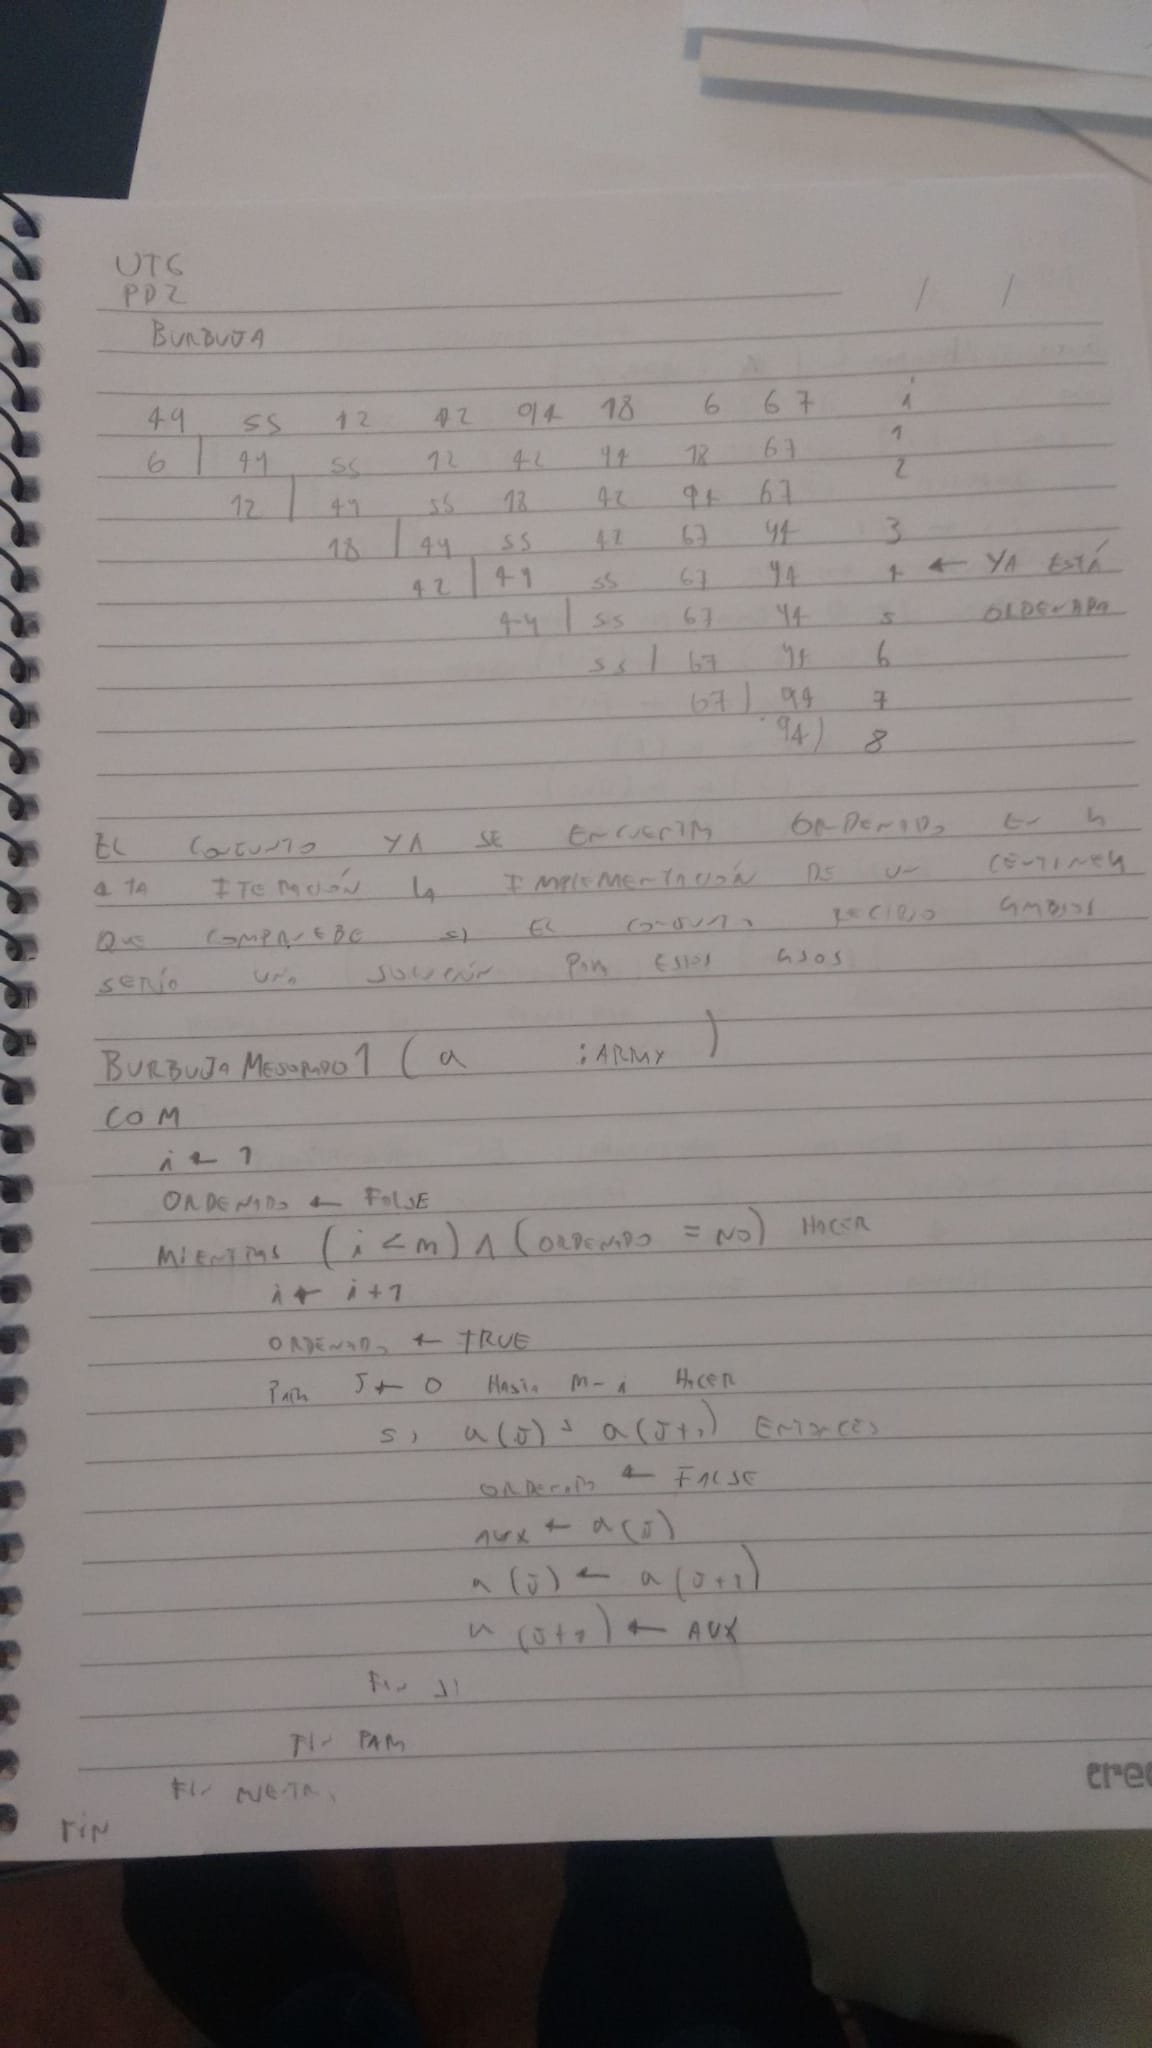 UT6
PD2
BURBUJA
44 55 12 42 94 18 6 67 i
6 | 44 55 12 42 94 18 67 1
12 | 44 55 18 42 94 67 2
18 | 44 55 42 67 94 3
42 | 44 55 67 94 4 ← YA ESTÁ
44 | 55 67 94 5 ORDENADO
55 | 67 94 6
67 | 94 7
94 | 8
EL CONJUNTO YA SE ENCUENTRA ORDENADO EN LA
4TA ITERACIÓN LA IMPLEMENTACIÓN DE UN CENTINELA
QUE COMPRUEBE SI EL CONJUNTO RECIBIO CAMBIOS
SERÍA UNA SOLUCIÓN PARA ESTOS CASOS
BURBUJA MEJORADO 1 (a : ARRAY)
COM
i ← 1
ORDENADO ← FALSE
MIENTRAS (i < m) ∧ (ORDENADO = NO) HACER
i ← i+1
ORDENADO ← TRUE
PARA J ← 0 HASTA m-i HACER
SI a(J) > a(J+1) ENTONCES
ORDENADO ← FALSE
AUX ← a(J)
a(J) ← a(J+1)
a(J+1) ← AUX
FIN SI
FIN PARA
FIN
FIN